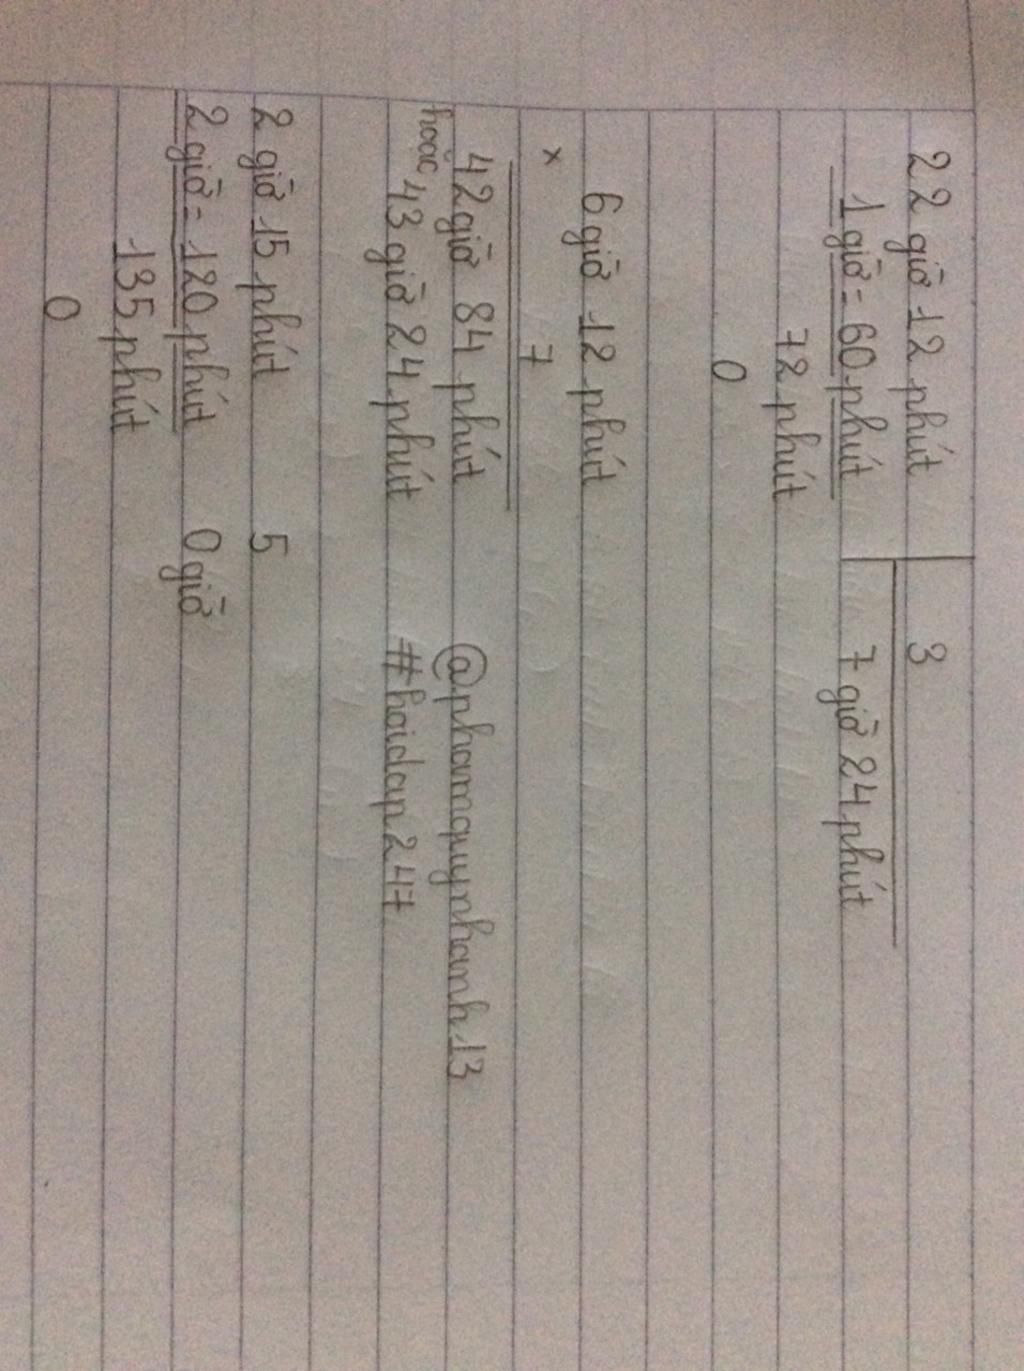 22 giờ 12 phút 3
1 giờ = 60 phút 7 giờ 24 phút
72 phút
0
6 giờ 12 phút
x 7
42 giờ 84 phút @phamquynhanh13
hoặc 43 giờ 24 phút #hoidap247
2 giờ 15 phút 5
2 giờ = 120 phút 0 giờ
135 phút
0